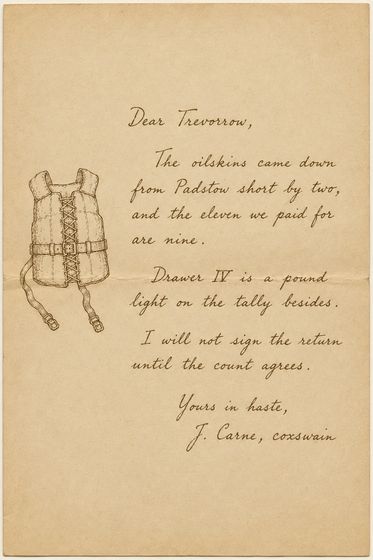 Dear Trevorrow,
The oilskins came down
from Padstow short by two,
and the eleven we paid for
are nine.
Drawer IV is a pound
light on the tally besides.
I will not sign the return
until the count agrees.
Yours in haste,
J. Carne, coxswain